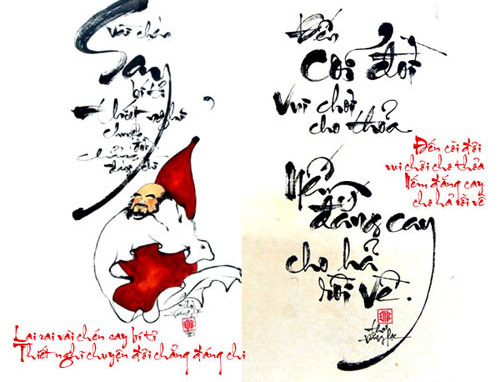 vài chén
Say
bí tỉ
thiết nghĩ
chuyện
đời
chẳng
đáng chi
Lai rai vài chén say bí tỉ
Thiết nghĩ chuyện đời chẳng đáng chi
Đến
cõi đời
vui chơi
cho thỏa
Nếm
đắng cay
cho hả
rồi về.
Đến cõi đời
vui chơi cho thỏa
Nếm đắng cay
cho hả rồi về